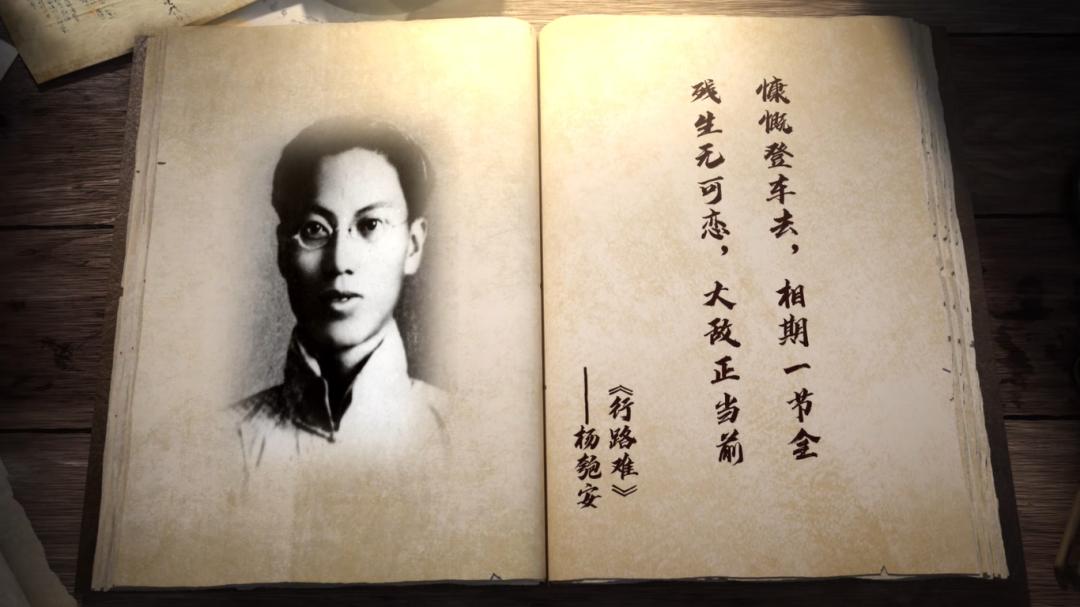 慷慨登车去，相期一节全
残生无可恋，大敌正当前
《行路难》
——杨匏安